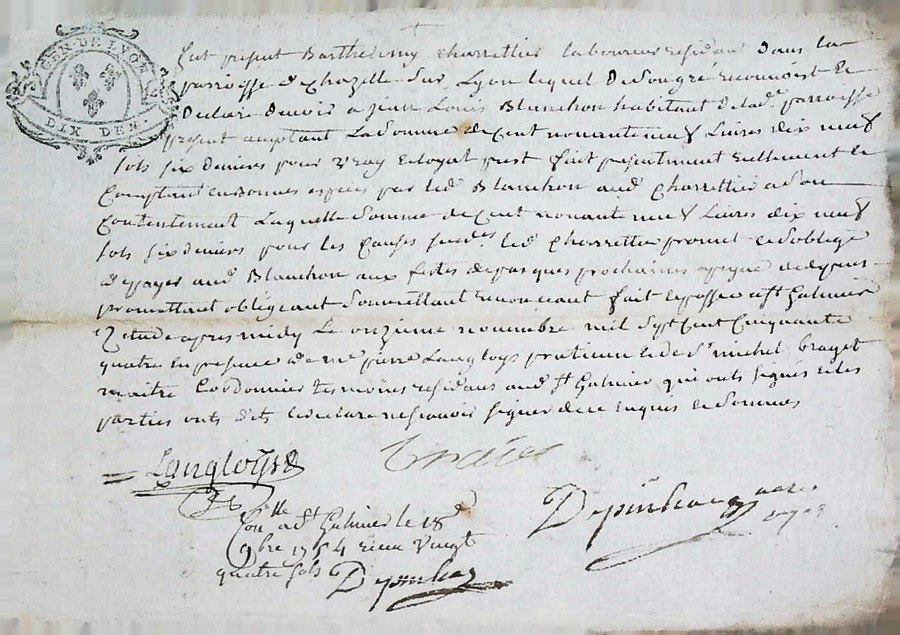 GEN. DE LYON
DIX DEN.
fut present Barthelemy charrettier laboureur residant dans la
parroisse de chazelle sur Lyon lequel de son gré reconnoist et
declare devoir a jean Louis Blanchon habitant de lad.e parroisse
present acceptant la somme de cent nonante neuf livres dix neuf
sols six deniers pour vray et loyal prest fait presentment reellement et
comptant en bonnes espèces par led. Blanchon aud. charrettier a son
contentement laquelle somme de cent nonante neuf livres dix neuf
sols six deniers pour les causes led. charrettier promet et soblige
de payer aud. Blanchon aux festes de pasques prochaines a peyne de depens
promettant obligeant soumettant renonceant fait et passe a st Galmier
Etude apres midy le onzieme novembre mil sept cent cinquante
quatre en presence de me pierre Langloys praticien et de sr michel
maitre cordonnier temoins residans aud. st Galmier qui onts signés et les
parties onts dits et declare ne scavoir signer de ce enquis et sommes
Langloys
Con.lle a st Galmier le 18e
9bre 1754 reçu vingt
quatre sols